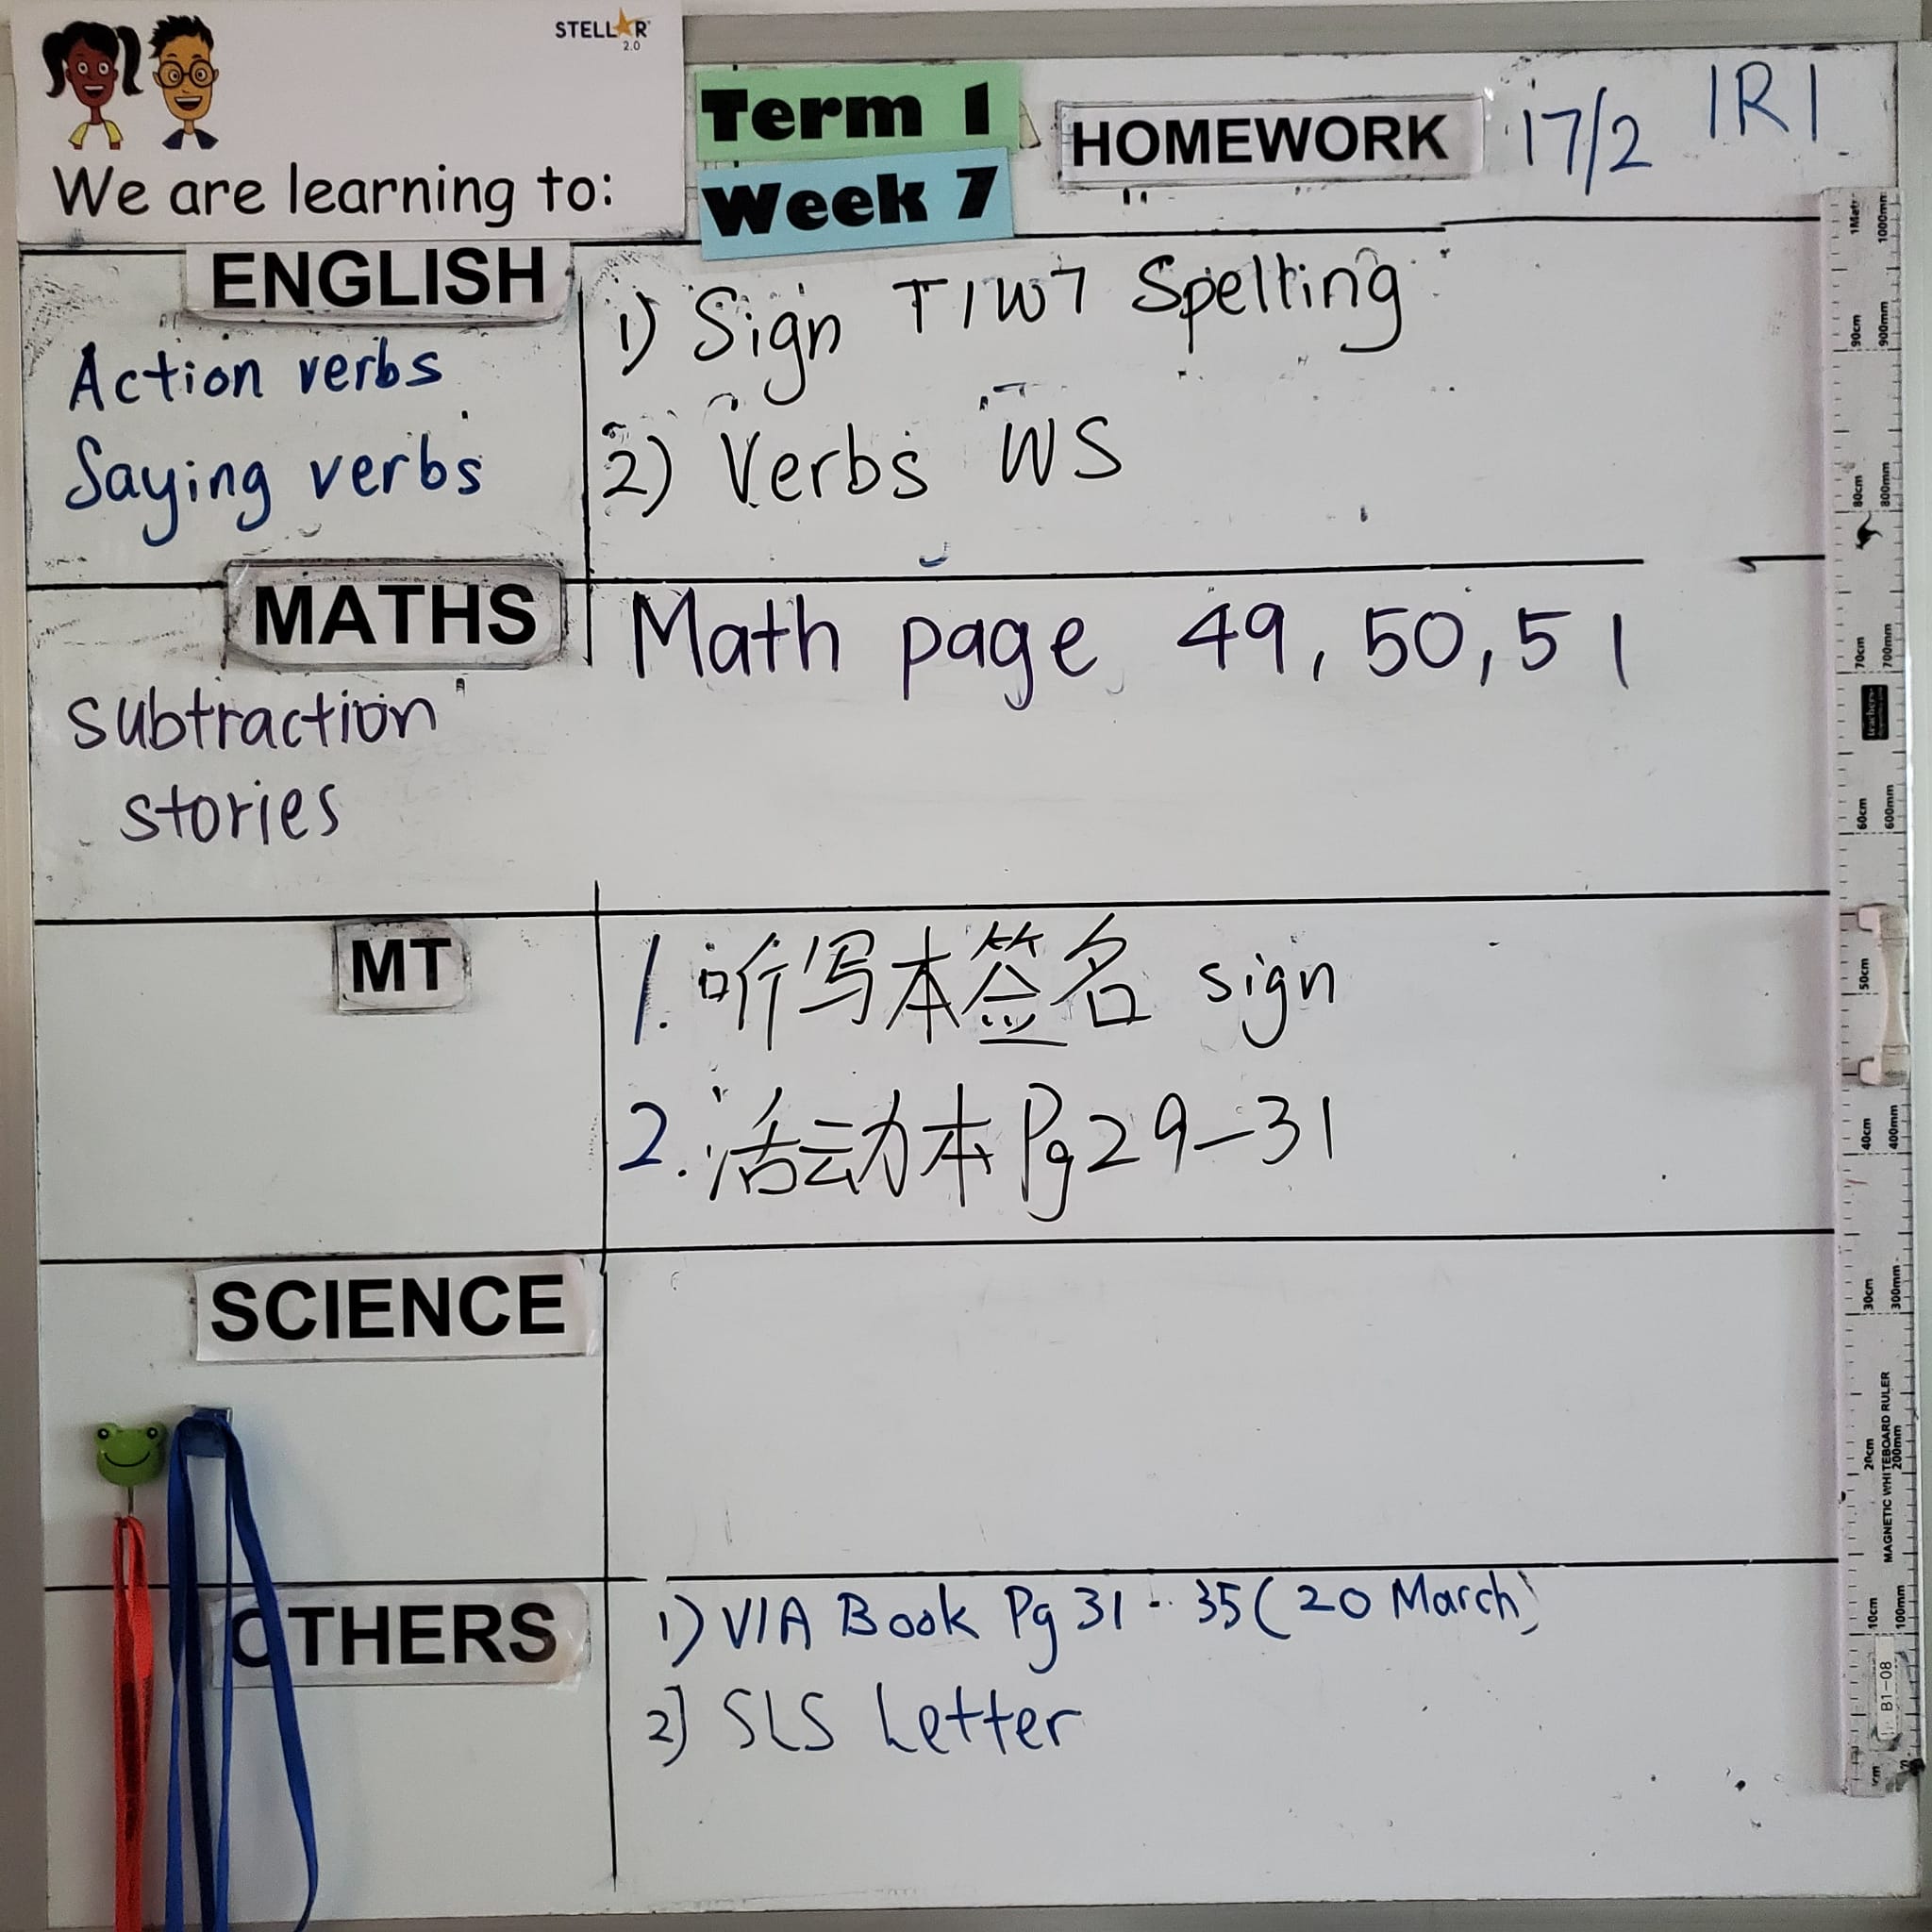 STELLAR 2.0
We are learning to:
Term 1
Week 7
HOMEWORK 17/2 1R1
ENGLISH
Action verbs
Saying verbs
1) Sign T1W7 Spelling
2) Verbs WS
MATHS
subtraction
stories
Math page 49, 50, 51
MT
1. 听写本签名 sign
2. 活动本 Pg 29-31
SCIENCE
OTHERS
1) VIA Book Pg 31 - 35 (20 March)
2) SLS Letter
1Metr 1000mm
90cm 900mm
80cm 800mm
70cm 700mm
teachers
60cm 600mm
50cm
40cm 400mm
30cm 300mm
20cm 200mm
MAGNETIC WHITEBOARD RULER
10cm 100mm
B1-08
cm